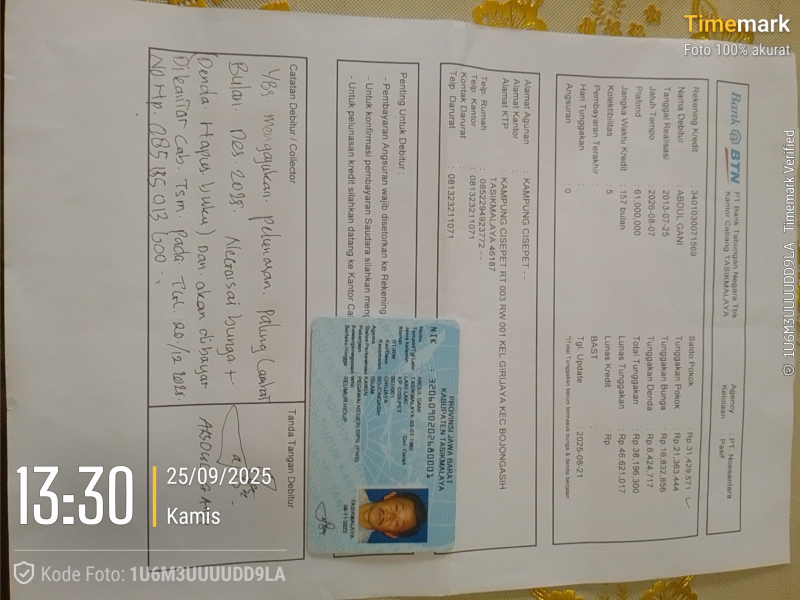 Timemark
Foto 100% akurat
Bank BTN
PT Bank Tabungan Negara Tbk
Kantor Cabang TASIKMALAYA
Agency : PT. Noesantara
Kelolaan : Pasif
Rekening Kredit : 3401030071569
Nama Debitur : ABDUL GANI
Tanggal Realisasi : 2013-07-25
Jatuh Tempo : 2026-08-07
Plafond : 61,000,000
Jangka Waktu Kredit : 157 bulan
Kolektibilitas : 5
Pembayaran Terakhir :
Hari Tunggakan :
Angsuran : 0
Saldo Pokok : Rp 31,429,571
Tunggakan Pokok : Rp 21,363,444
Tunggakan Bunga : Rp 16,832,856
Tunggakan Denda : Rp 8,424,717
Total Tunggakan : Rp 38,196,300
Lunas Tunggakan : Rp 46,621,017
Lunas Kredit : Rp
BAST :
Tgl. Update : 2025-08-21
*)Total Tunggakan belum termasuk bunga & denda berjalan
Alamat Agunan : KAMPUNG CISEPET - -
Alamat Kantor :
Alamat KTP : KAMPUNG CISEPET RT 003 RW 001 KEL GIRIJAYA KEC BOJONGASIH
TASIKMALAYA 46187
Telp. Rumah : 0852294923772 - -
Telp. Kantor :
Kontak Darurat : 081323211071
Telp. Darurat : 081323211071
Penting Untuk Debitur :
- Pembayaran Angsuran wajib disetorkan ke Rekening
- Untuk konfirmasi pembayaran Saudara silahkan meng
- Untuk pelunasan kredit silahkan datang ke Kantor Ca
PROVINSI JAWA BARAT
KABUPATEN TASIKMALAYA
NIK : 3206090202680001
Nama : ABDUL GANI
Jenis Kelamin : LAKI-LAKI
Alamat : KP CISEPET
RT/RW
Kel/Desa : GIRIJAYA
Kecamatan : BOJONGASIH
Agama : ISLAM
Status Perkawinan : KAWIN
Pekerjaan : PEGAWAI NEGERI SIPIL (PNS)
Kewarganegaraan : WNI
Berlaku Hingga : SEUMUR HIDUP
TASIKMALAYA
Catatan Debitur / Collector
Tanda Tangan Debitur
Ybs mengajukan pelunasan. Paling Lambat
Bulan Des 2028. Negoisai bunga +
Denda Hapus buku) Dan akan dibayar
Dikantor Cab. Tsm. pada TGL 20/12 2028.
No Hp. 085 185 913 600
13:30
25/09/2025
Kamis
Kode Foto: 1U6M3UUUUDD9LA
© 1U6M3UUUUDD9LA Timemark Verified